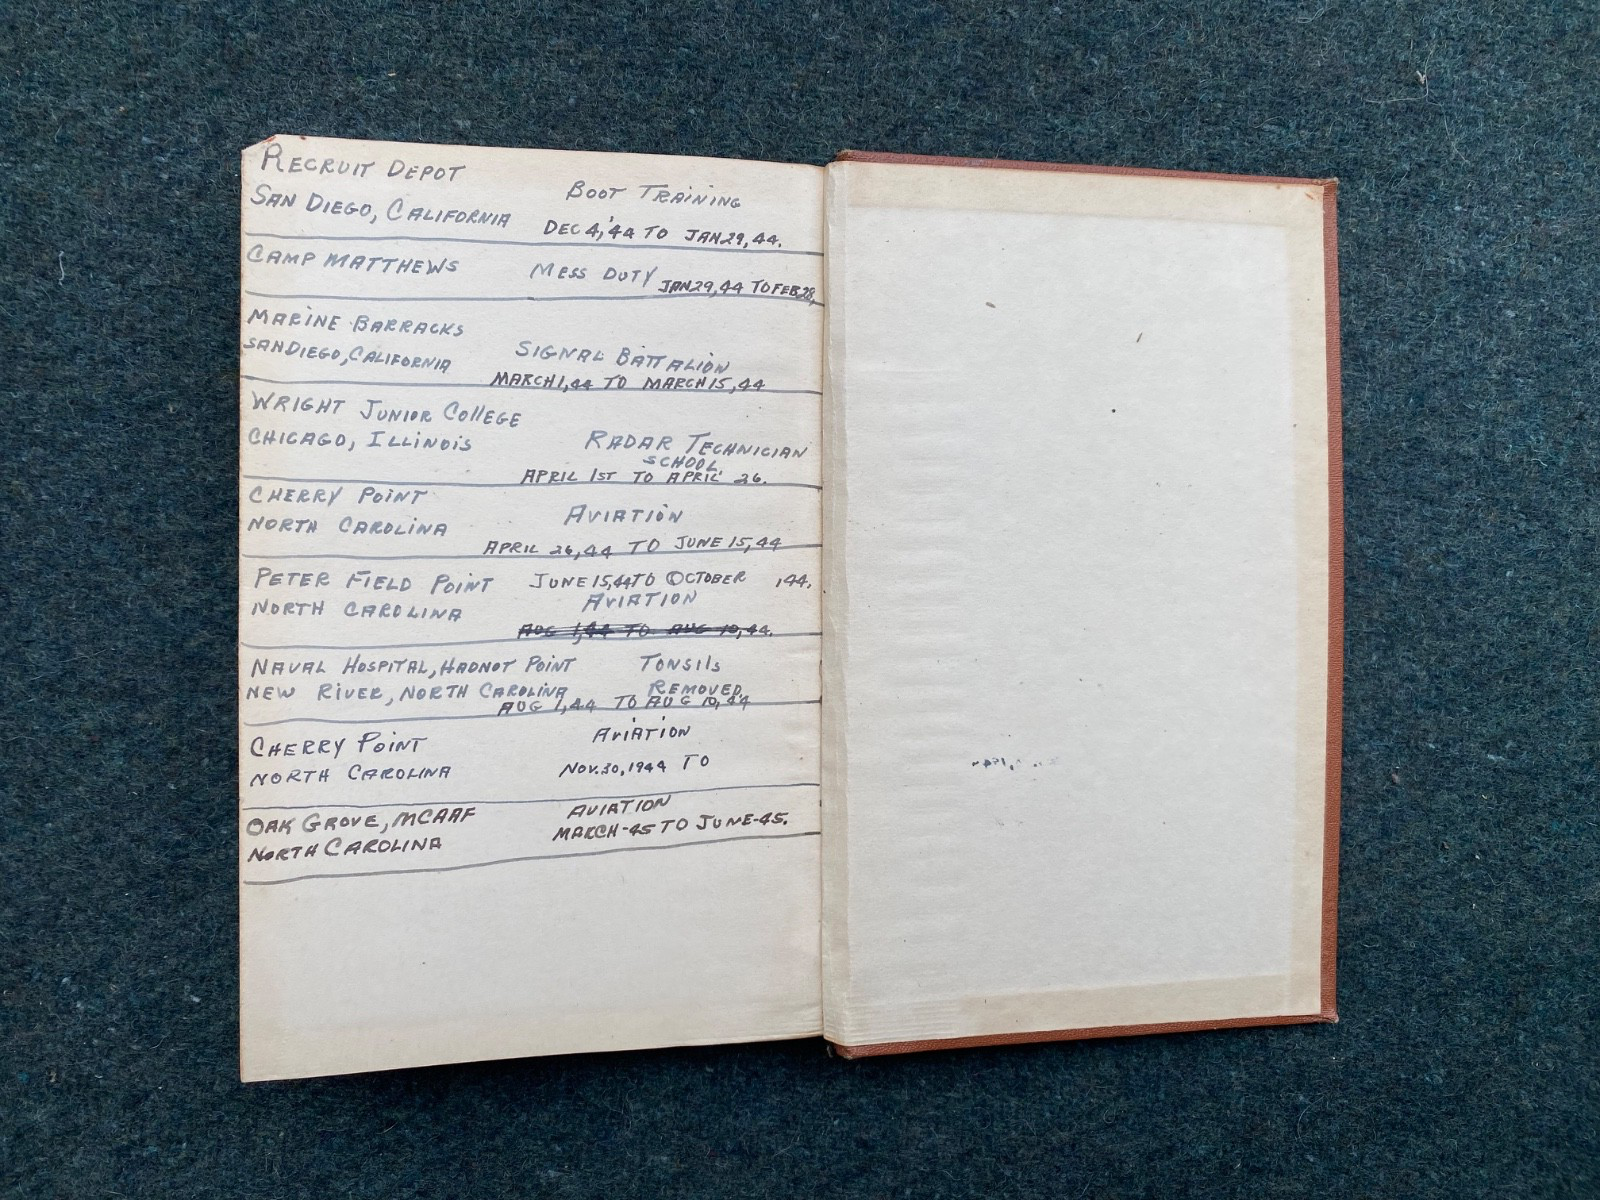 RECRUIT DEPOT
SAN DIEGO, CALIFORNIA
BOOT TRAINING
DEC 4,'44 TO JAN 29, 44.
CAMP MATTHEWS
MESS DUTY JAN 29, 44 TO FEB 28,
MARINE BARRACKS
SAN DIEGO, CALIFORNIA
SIGNAL BATTALION
MARCH 1, 44 TO MARCH 15, 44
WRIGHT JUNIOR COllEGE
CHICAGO, ILLINOIS
RADAR TECHNICIAN
SCHOOL
APRIL 1ST TO APRIL 26.
CHERRY POINT
NORTH CAROLINA
AVIATION
APRIL 26, 44 TO JUNE 15, 44
PETER FIELD POINT
NORTH CAROLINA
JUNE 15, 44 TO OCTOBER , 44.
AVIATION
AUG 1, 44 TO AUG 10, 44.
NAVAL HOSPITAL, HADNOT POINT
NEW RIVER, NORTH CAROLINA
TONSIls
REMOVED
AUG 1, 44 TO AUG 10, 44
CHERRY POINT
NORTH CAROLINA
AVIATION
NOV. 30, 1944 TO
OAK GROVE, MCAAF
NORTH CAROLINA
AVIATION
MARCH-45 TO JUNE-45.